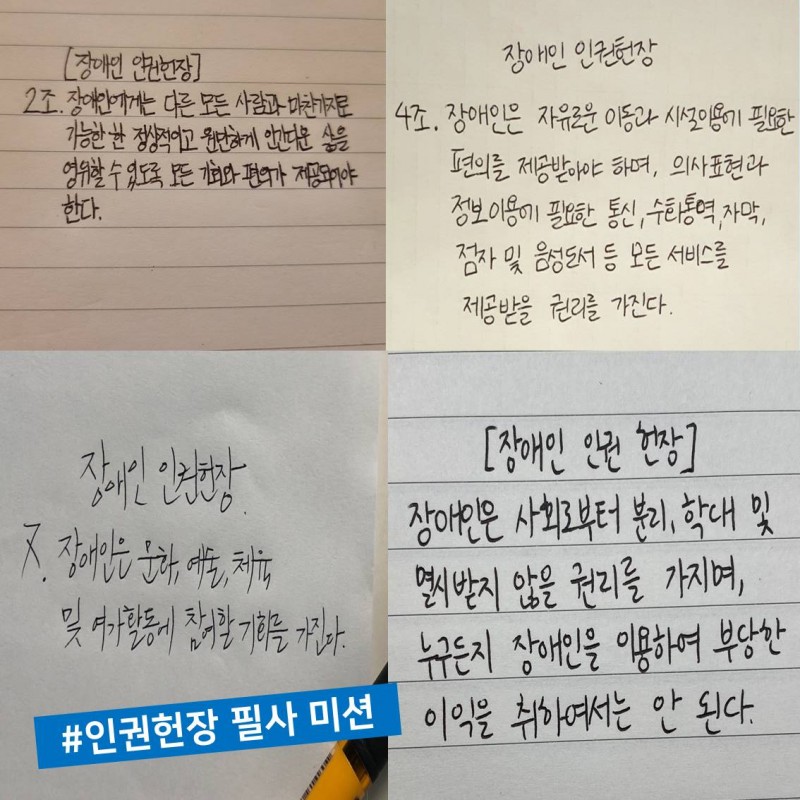 [장애인 인권헌장]
2조. 장애인에게는 다른 모든 사람과 마찬가지로
가능한 한 정상적이고 원만하게 인간다운 삶을
영위할 수 있도록 모든 기회와 편의가 제공되어야
한다.
장애인 인권헌장
4조. 장애인은 자유로운 이동과 시설이용에 필요한
편의를 제공받아야 하며, 의사표현과
정보이용에 필요한 통신, 수화통역, 자막,
점자 및 음성도서 등 모든 서비스를
제공받을 권리를 가진다.
장애인 인권헌장.
7. 장애인은 문화, 예술, 체육
및 여가활동에 참여할 기회를 가진다.
[장애인 인권 헌장]
장애인은 사회로부터 분리, 학대 및
멸시받지 않을 권리를 가지며,
누구든지 장애인을 이용하여 부당한
이익을 취하여서는 안 된다.
#인권헌장 필사 미션